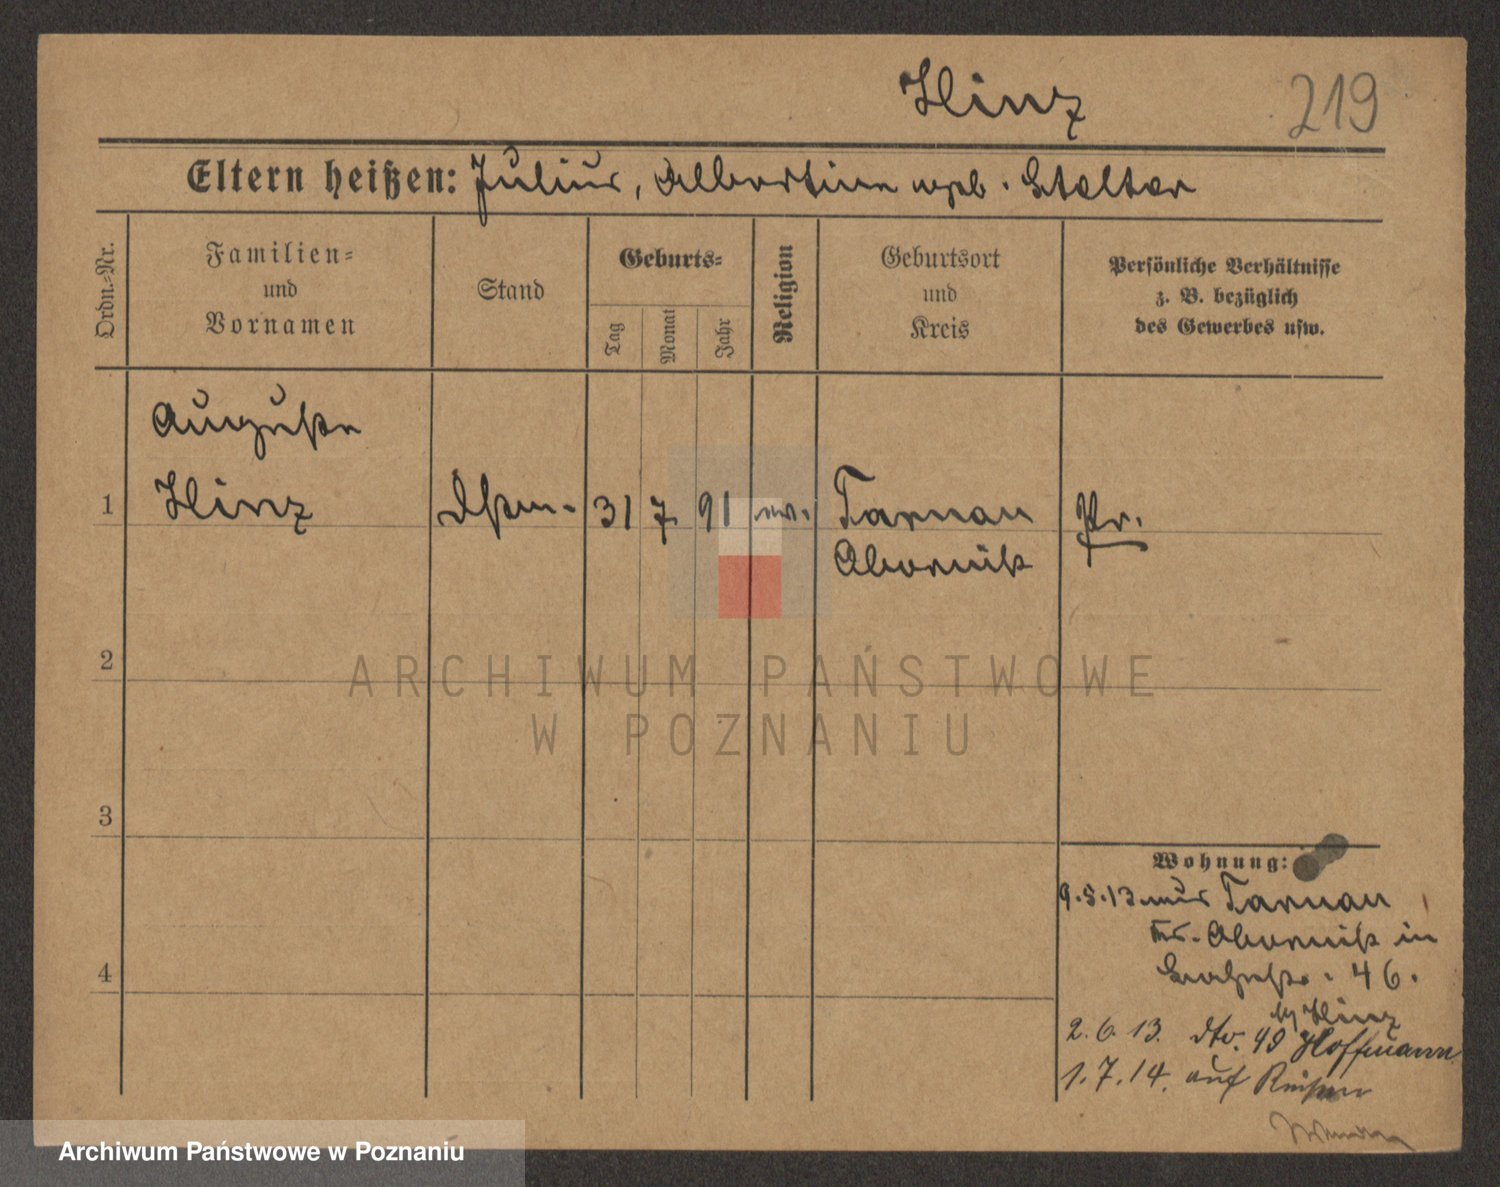 Hinz
219
Eltern heißen: Julius, Albertine geb. Stelter
Ordn.=Nr.
Familien=
und
Vornamen
Stand
Geburts=
Tag
Monat
Jahr
Religion
Geburtsort
und
Kreis
Persönliche Verhältnisse
z. B. bezüglich
des Gewerbes usw.
Auguste
1 Hinz Dstm. 31 7 91 ev. Tarnau Pr.
Obornik
2
ARCHIWUM PAŃSTWOWE
W POZNANIU
3
Wohnung:
9.5.13. aus Tarnau
Kr. Obornik in
46.
b/ Hinz
2.6.13. dto. 49 Hoffmann
4
1.7.14. auf Reisen
Archiwum Państwowe w Poznaniu